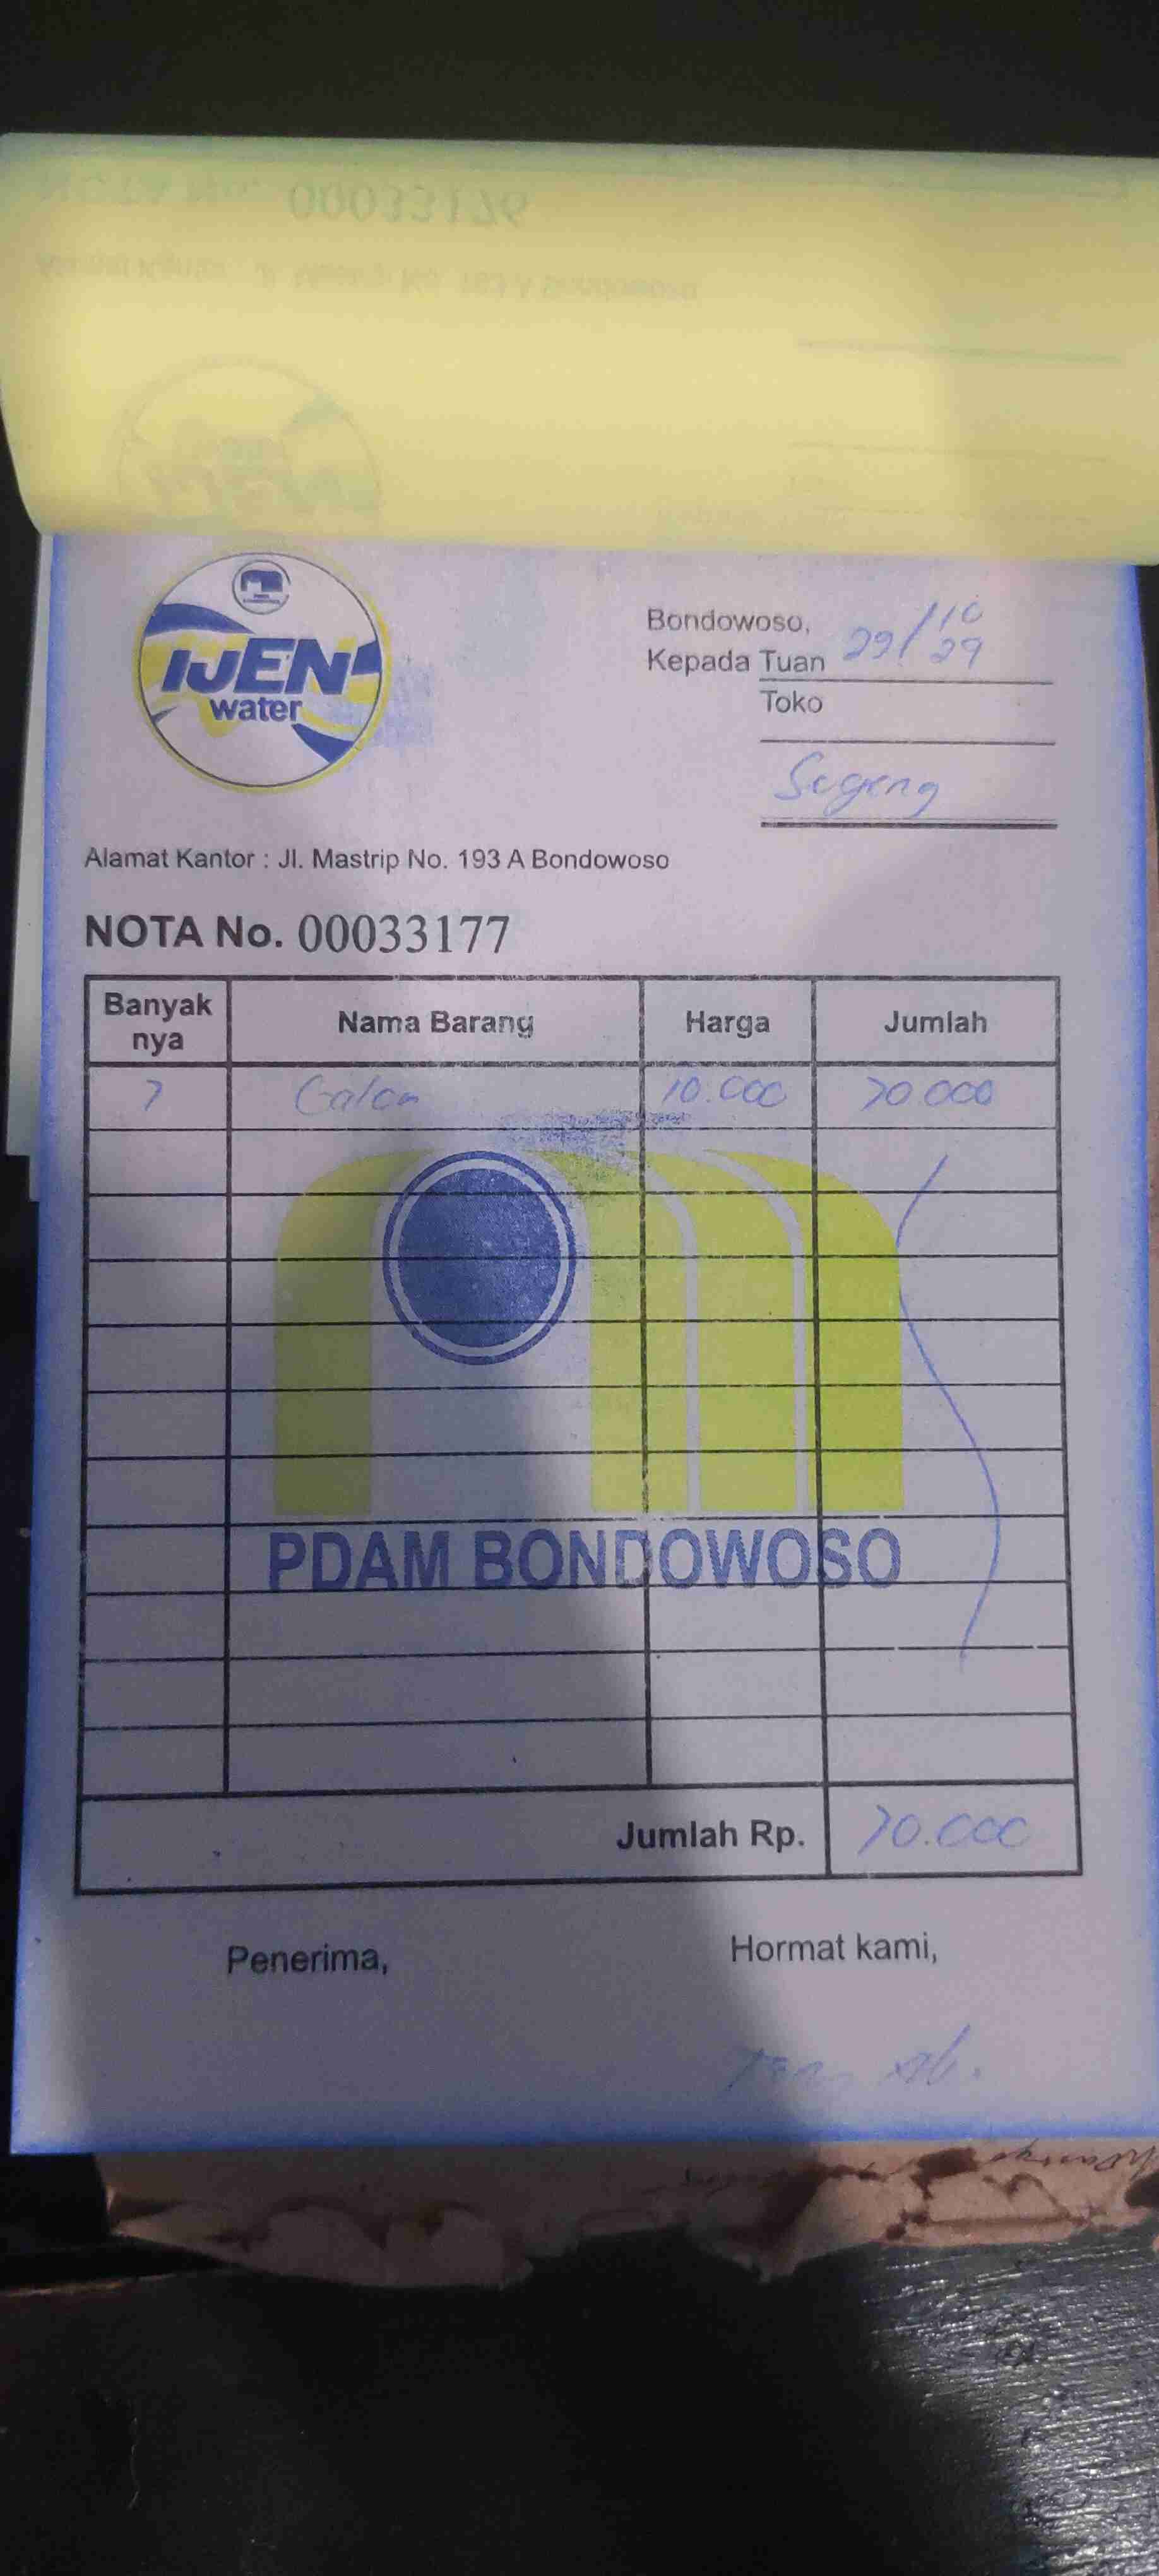 00033176
IJEN
water
Bondowoso, 29/10
Kepada Tuan
Toko
Sugeng
Alamat Kantor : Jl. Mastrip No. 193 A Bondowoso
NOTA No. 00033177
Banyak nya Nama Barang Harga Jumlah
7 Galon 10.000 70.000
PDAM BONDOWOSO
Jumlah Rp. 70.000
Penerima, Hormat kami,